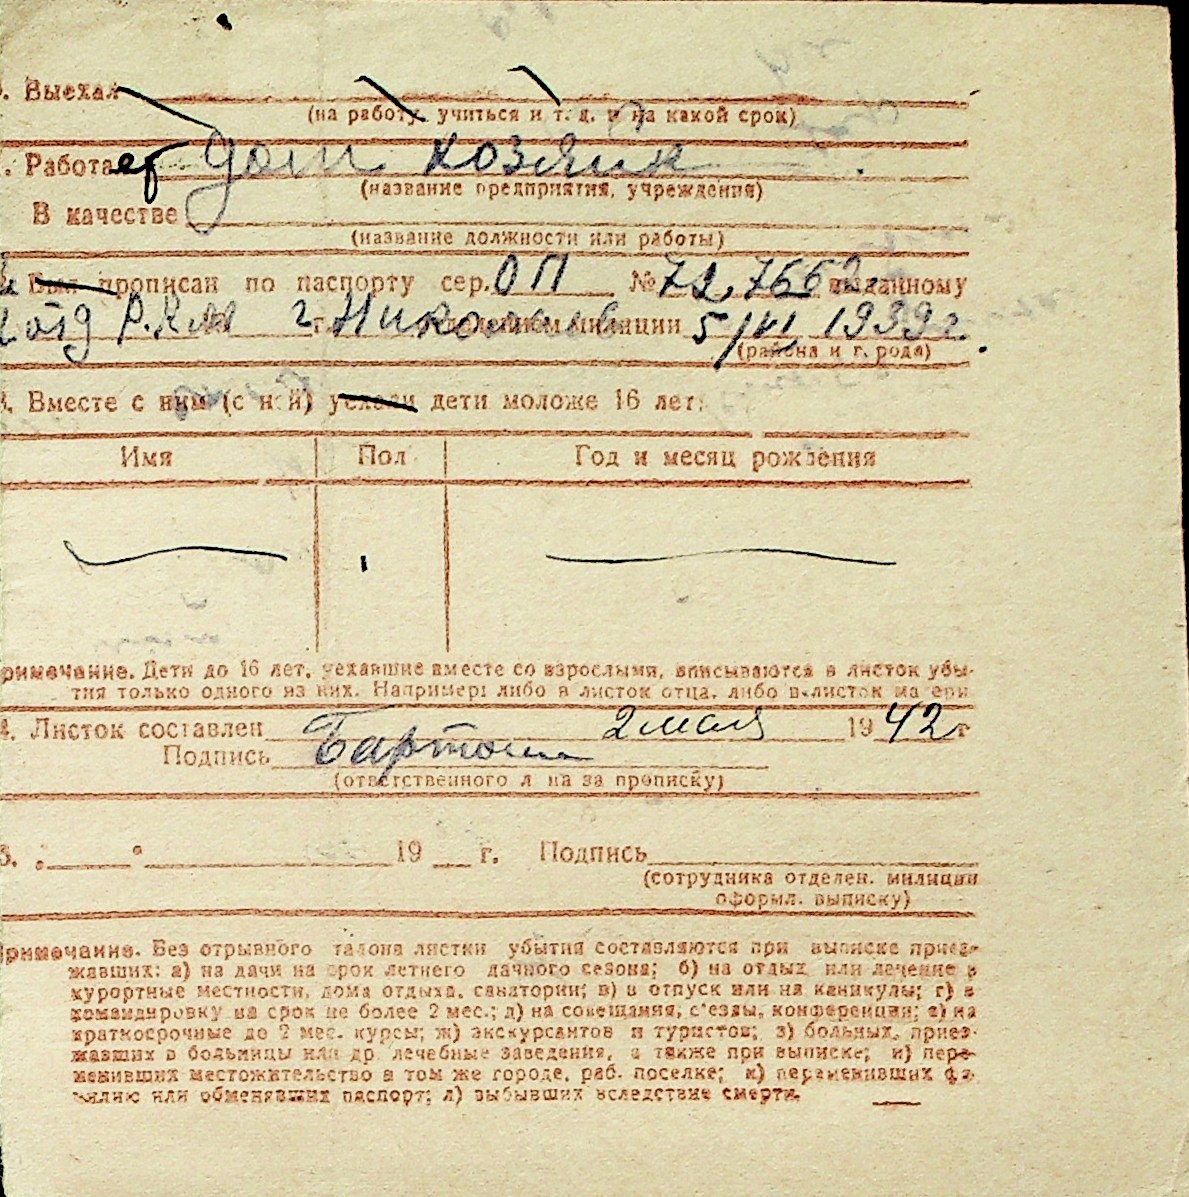 . Выехал
(на работу учиться и т. д. и на какой срок)
. Работает дом хозяйк
(название предприятия, учреждения)
В качестве
(название должности или работы)
Был прописан по паспорту сер. ОП № 727662 выданному
отд Р.К.М г. Николаев милиции 5/VI 1939 г.
(района и г. рода)
. Вместе с ним (с ней) уехали дети моложе 16 лет:
Имя Пол Год и месяц рождения
римечание. Дети до 16 лет, уехавшие вместе со взрослыми, вписываются в листок убы-
тия только одного из них. Например: либо в листок отца, либо в листок матери
4. Листок составлен 2 мая 1942 г
Подпись
(ответственного л на за прописку)
5. 19 г. Подпись
(сотрудника отделен. милиции
оформл. выписку)
римечание. Без отрывного талона листки убытия составляются при выписке приез-
жавших: а) на дачи на срок летнего дачного сезона; б) на отдых или лечение в
курортные местности, дома отдыха, санатории; в) в отпуск или на каникулы; г) в
командировку на срок не более 2 мес.; д) на совещания, с'езды, конференции; е) на
краткосрочные до 2 мес. курсы; ж) экскурсантов и туристов; з) больных, приез-
жавших в больницы или др. лечебные заведения, а также при выписке; и) пере-
менивших местожительство в том же городе, раб. поселке; к) переменивших фа-
милию или обменявших паспорт; л) выбывших вследствие смерти.